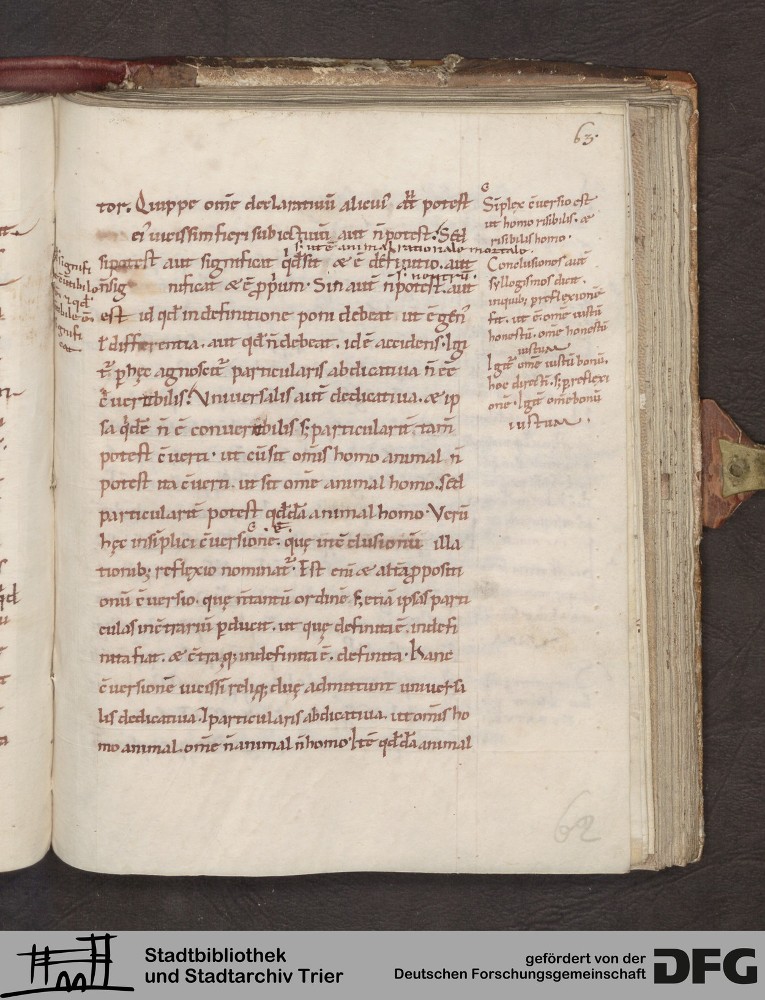 63.
tor. Quippe om̄e declaratiuū alicui aut potest
ei uicissim fieri subiectiuū aut n̄ potest. Sed
s. ut ē animal rationale mortale.
si potest aut significat qd sit & ē definitio. aut
n̄ sig nificat & ē ꝓprium. Sin aut n̄ potest. aut
est id qd in definitione poni debeat ut ē gen'
ł differentia. aut qd n̄ debeat. id ē accidens. Igi
t' ꝑ hęc agnoscit' particularis abdicatiua n̄ eē
c̄uertibilis. Vniuersalis aut dedicatiua. & ip
sa qdē n̄ ē conuertibilis s; particularit' tam̄
potest c̄uerti. ut cū sit omīs homo animal n̄
potest ita c̄uerti. ut sit om̄e animal homo. sed
particularit' potest qddā animal homo. Verū
hęc in simplici c̄uersione. quę in c̄clusionū illa
tionib; reflexio nominat'. Est eni & alta ꝓpositi
onū c̄uersio. quę n̄ tantū ordinē s; etiā ipsas parti
culas in c̄trariū ꝑducit. ut quę definita ē. indefi
nita fiat. & c̄traq; indefinita ē. definita. Hanc
c̄uersionē uicissī reliq; duę admittunt uniuersa
lis dedicatiua. & particularis abdicatiua. ut omīs ho
mo animal. om̄e n̄ animal n̄ homo. Itē qddā animal
Sīplex c̄uersio est
ut homo risibilis. &
risibilis homo.
Conclusiones aut
syllogismos dicit.
in quib; ꝑ reflexionē
fit. ut ē. om̄e iustū
honestū. om̄e honestū
Igit' om̄e iustū bonū.
hoc directī. s; ꝑ reflexi
onē. Igit' om̄e bonū
iustum.
62
Stadtbibliothek
und Stadtarchiv Trier
gefördert von der
Deutschen Forschungsgemeinschaft
DFG